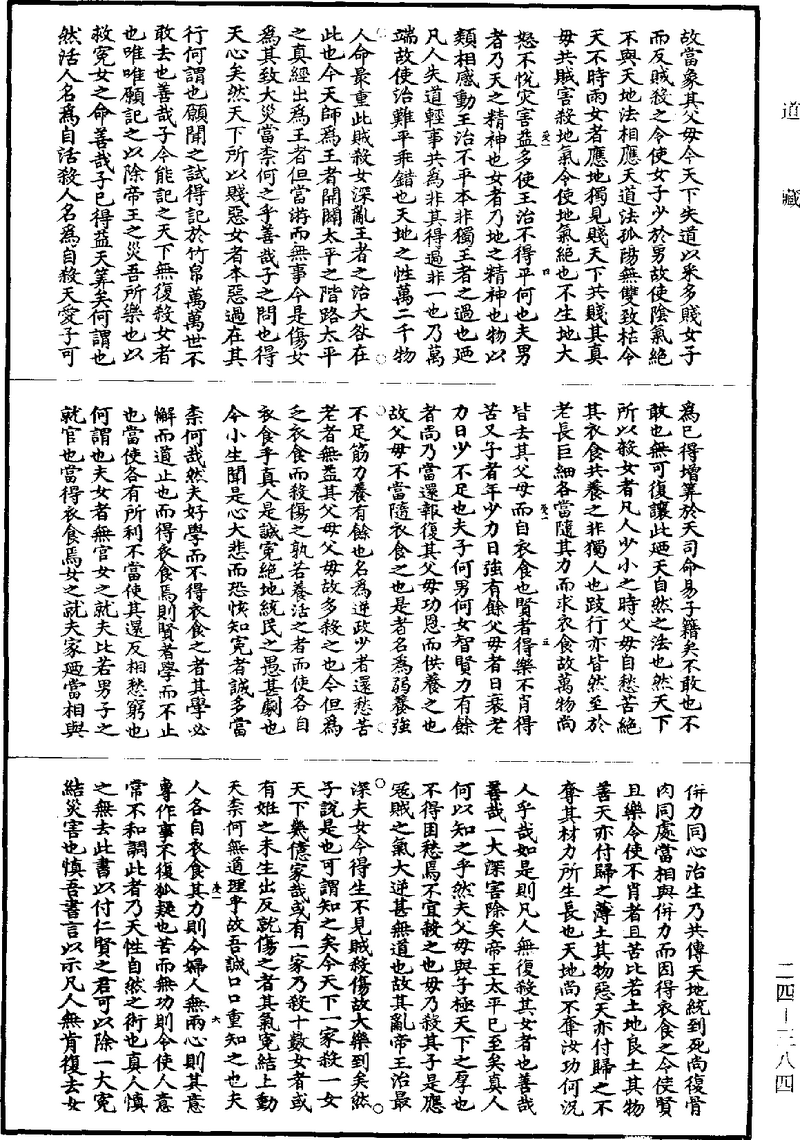 道藏
故當象其父母今天下失道以來多賤女子
而反賊殺之令使女子少於男故使陰氣絕
不與天地法相應天道法孤陽無雙致枯令
天不時雨女者應地獨見賤天下共賤其真
母共賊害殺地氣令使地氣絕也不生地大
怒不悅灾害益多使王治不得平何也夫男
者乃天之精神也女者乃地之精神也物以
類相感動王治不平本非獨王者之過也廼
凡人失道輕事共為非其得過非一也乃萬
端故使治難平乖錯也天地之性萬二千物
人命最重此賊殺女深亂王者之治大咎在
此也今天師為王者開闢太平之階路太平
之真經出為王者但當游而無事今是傷女
為其致大災當柰何之乎善哉子之問也得
天心矣然天下所以賤惡女者本惡過在其
行何謂也願聞之試得記於竹帛萬萬世不
敢去也善哉子今能記之天下無復殺女者
也唯唯願記之以除帝王之災吾所樂也以
救冤女之命善哉子已得益天筭矣何謂也
然活人名為自活殺人名為自殺天愛子可
為已得增筭於天司命易子籍矣不敢也不
敢也無可復讓此廼天自然之法也然天下
所以殺女者凡人少小之時父母自愁苦絕
其衣食共養之非獨人也跂行亦皆然至於
老長巨細各當隨其力而求衣食故萬物尚
皆去其父母而自衣食也賢者得樂不肖得
苦又子者年少力日強有餘父母者日衰老
力日少不足也夫子何男何女智賢力有餘
者尚乃當還報復其父母功恩而供養之也
故父母不當隨衣食之也是者名為弱養強
不足筋力養有餘也名為逆政少者還愁苦
老者無益其父母父母故多殺之也今但為
乏衣食而殺傷之孰若養活之者而使各自
衣食乎真人是誠冤絕地統民之愚甚劇也
今小生聞是心大悲而恐悇知冤者誠多當
柰何哉然夫好學而不得衣食之者其學必
懈而道止也而得衣食焉則賢者學而不止
也當使各有所利不當使其還反相愁窮也
何謂也夫女者無官女之就夫比若男子之
就官也當得衣食焉女之就夫家廼當相與
併力同心治生乃共傳天地統到死尚復骨
肉同處當相與併力而因得衣食之令使賢
且樂令使不肖者且苦比若土地良土其物
善天亦付歸之薄土其物惡天亦付歸之不
奪其材力所生長也天地尚不奪汝功何況
人乎哉如是則凡人無復殺其女者也善哉
善哉一大深害除矣帝王太平已至矣真人
何以知之乎然夫父母與子極天下之厚也
不得困愁焉不宜殺之也母乃殺其子是應
冤賊之氣大逆甚無道也故其亂帝王治最
深夫女今得生不見賊殺傷故大樂到矣然
子說是也可謂知之矣今天下一家殺一女
天下幾億家哉或有一家乃殺十數女者或
有姙之未生出反就傷之者其氣冤結上動
天柰何無道理乎故吾誠口口重知之也夫
人各自衣食其力則令婦人無兩心則其意
專作事不復狐疑也苦而無功則令使人意
常不和調此者乃天性自然之術也真人慎
之無去此書以付仁賢之君可以除一大冤
結災害也慎吾書言以示凡人無肯復去女
二四-三八四